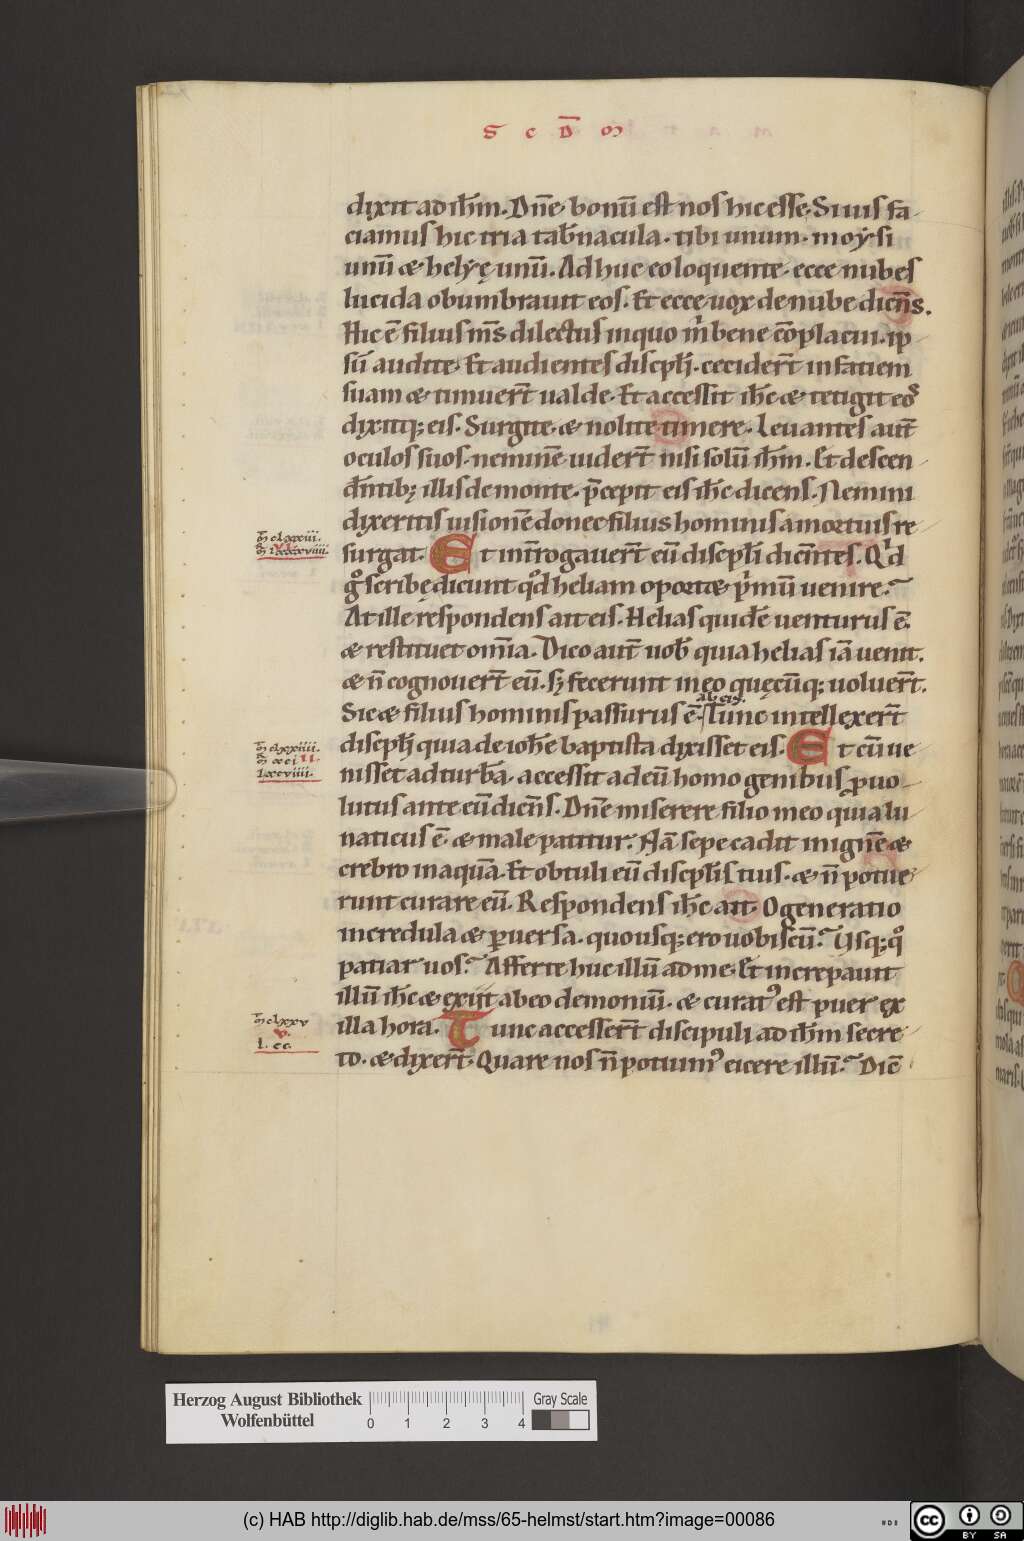 S c D̅ m
dixit ad ih̅m. Dn̅e bonu̅ est nos hic esse. Si uis fa
ciamus hic tria tab̅nacula. tibi unum. moẏsi
unu̅ & helẏę unu̅. Adhuc eo loquente. ecce nubes
lucida obumbrauit eos. Et ecce uox de nube dice̅s.
Hic e̅ filius m̅s dilectus in quo m̅ bene co̅placui. ip
su̅ audite. Et audientes discipl̅i. cecider̅t in faciem
suam & timuer̅t ualde. Et accessit ih̅c & tetigit eos
dixitq; eis. Surgite. & nolite timere. Leuantes aut̅
oculos suos. nemine̅ uider̅t nisi solu̅ ih̅m. Et descen
de̅ntib; illis de monte. p̅cepit eis ih̅c dicens. Nemini
dixeritis uisione̅ donec filius hominis a mortuis re
surgat. Et int̅rogauer̅t eu̅ discipl̅i dice̅ntes. Qd
g̊ scribę dicunt qd̊ heliam oport& p̅mu̅ uenire?
At ille respondens ait eis. Helias quide̅ uenturus e̅.
& restituet om̅ia. Dico aut̅ uob̅ quia helias ia̅ uenit.
& n̅ cognouer̅t eu̅. s; fecerunt in eo quęcu̅q; uoluer̅t.
ab eis.
Sic & filius hominis passurus e̅. Tunc intellexer̅t
discipl̅i quia de ioh̅e baptista dixisset eis. Et cu̅ ue
nisset ad turba̅. accessit ad eu̅ homo genibus puo
lutus ante eu̅ dice̅ns. Dn̅e miserere filio meo quia lu
naticus e̅. & male patitur. Na̅ sepe cadit in igne̅ &
crebro in aqua̅. Et obtuli eu̅ discipl̅is tuis. & n̅ potue
runt curare eu̅. Respondens ih̅c ait. O generatio
incredula & puersa. quousq; ero uobiscu̅? Usq; q̊
patiar uos? Afferte huc illu̅ ad me. Et increpauit
illu̅ ih̅c & exiit ab eo demoniu̅. & curat' est puer ex
illa hora. Tunc accesser̅t discipuli ad ih̅m secre
to. & dixer̅t. Quare nos n̅ potuim' eicere illu̅? Dic̅
Herzog August Bibliothek
Wolfenbüttel
0 1 2 3 4
Gray Scale
(c) HAB http://diglib.hab.de/mss/65-helmst/start.htm?image=00086
cc BY SA